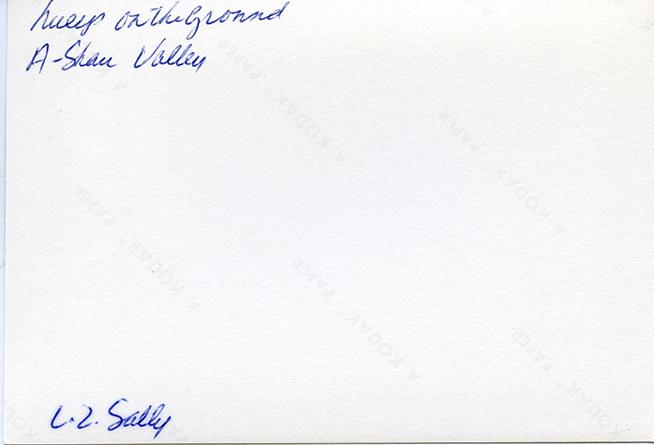 Hueys on the Ground
A-Shau Valley
A KODAK PAPER
A KODAK PAPER
A KODAK PAPER
A KODAK PAPER
A KODAK PAPER
L.Z. Sally